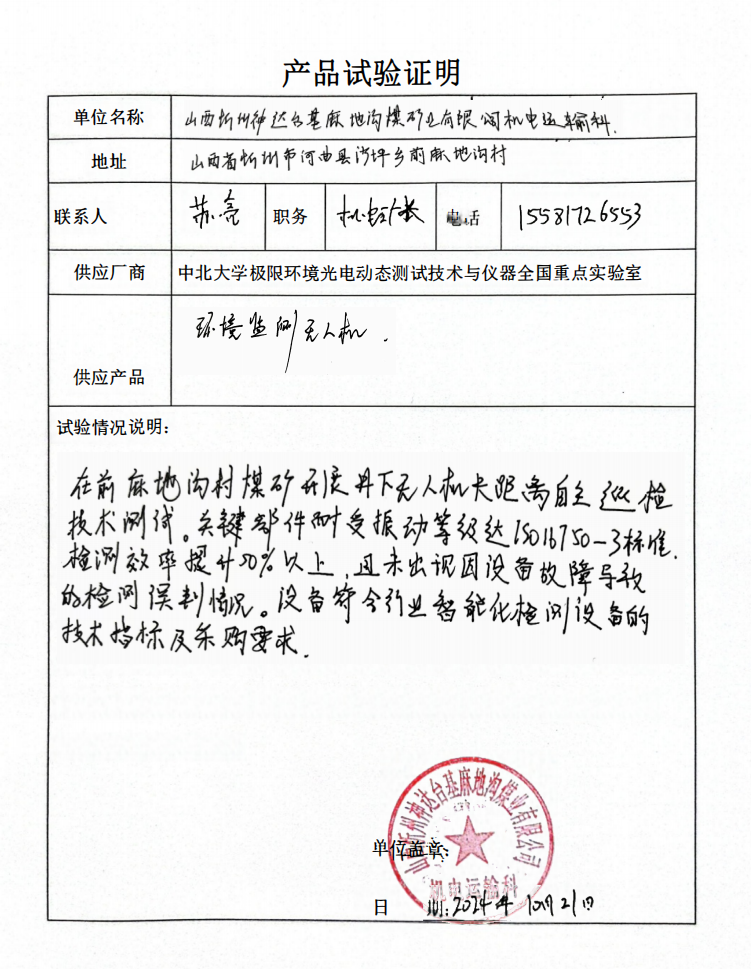 产品试验证明
单位名称 山西忻州神达台基麻地沟煤矿业有限公司机电运输科.
地址 山西省忻州市河曲县沙坪乡前麻地沟村
联系人 苏亮 职务 机电队长 电话 15581726553
供应厂商 中北大学极限环境光电动态测试技术与仪器全国重点实验室
环境监测无人机.
供应产品
试验情况说明:
在前麻地沟村煤矿开展井下无人机长距离自主巡检
技术测试。关键部件耐受振动等级达ISO16750-3标准.
检测效率提升50%以上,且未出现因设备故障导致
的检测误判情况。设备符合行业智能化检测设备的
技术指标及采购要求.
山西忻州神达台基麻地沟煤业有限公司
单位盖章:
机电运输科
日 期:2024年10月21日